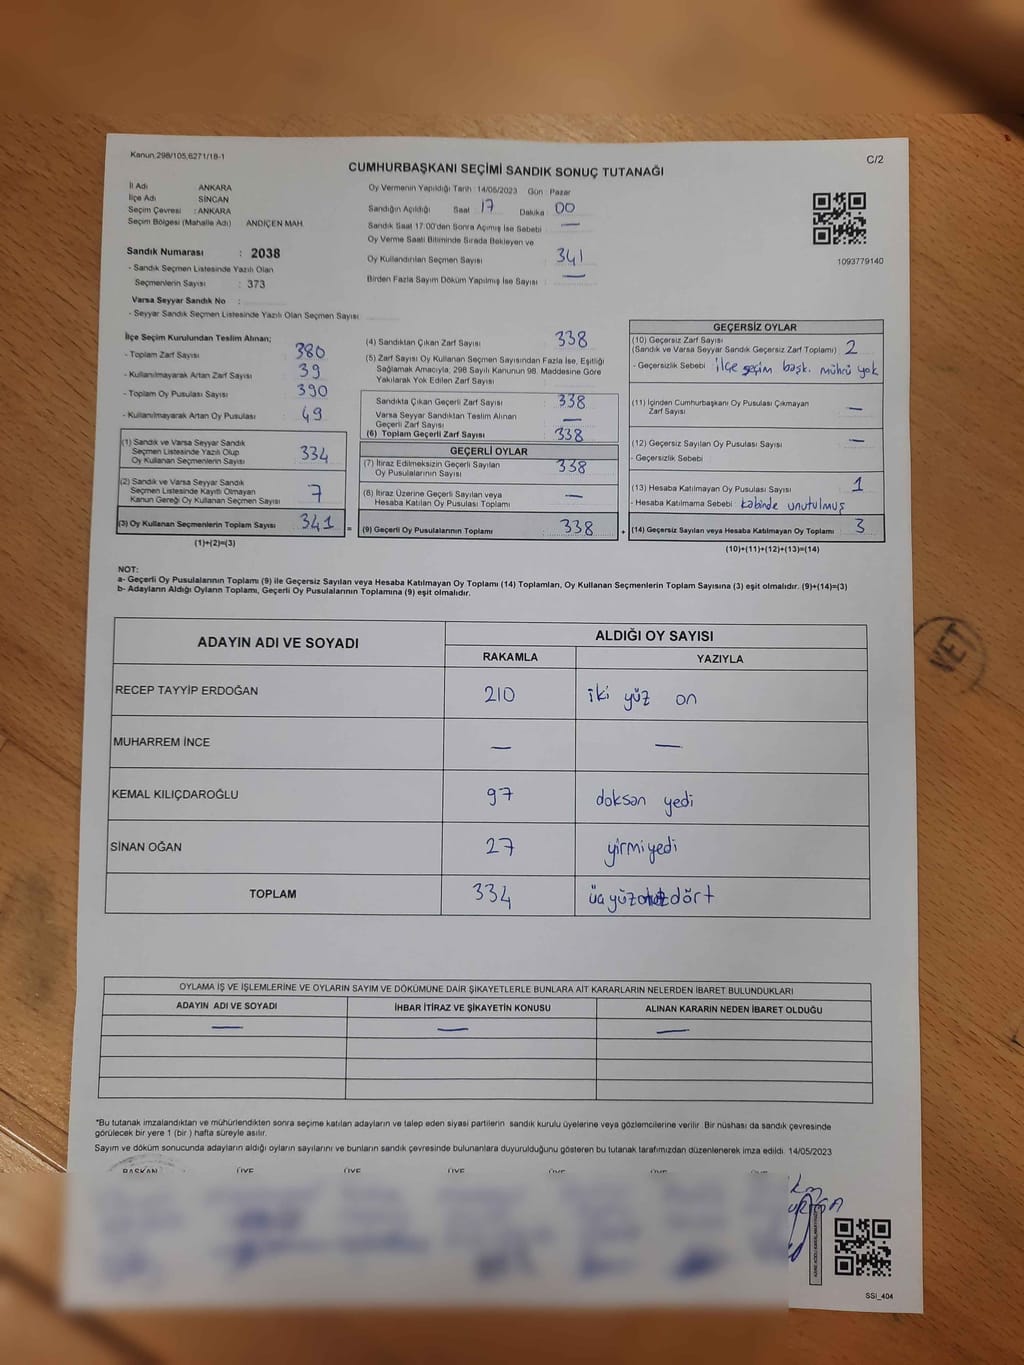 Kanun.298/105,6271/18-1
C/2
CUMHURBAŞKANI SEÇİMİ SANDIK SONUÇ TUTANAĞI
İl Adı ANKARA
İlçe Adı SİNCAN
Seçim Çevresi : ANKARA
Seçim Bölgesi (Mahalle Adı) ANDİÇEN MAH.
Sandık Numarası : 2038
- Sandık Seçmen Listesinde Yazılı Olan
Seçmenlerin Sayısı : 373
Varsa Seyyar Sandık No :
- Seyyar Sandık Seçmen Listesinde Yazılı Olan Seçmen Sayısı
Oy Vermenin Yapıldığı Tarih : 14/05/2023 Gün : Pazar
Sandığın Açıldığı Saat 17 Dakika 00
Sandık Saat 17:00'den Sonra Açımış İse Sebebi : —
Oy Verme Saati Bitiminde Sırada Bekleyen ve
Oy Kullandırılan Seçmen Sayısı : 341
Birden Fazla Sayım Döküm Yapılmış İse Sayısı : —
1093779140
İlçe Seçim Kurulundan Teslim Alınan;
- Toplam Zarf Sayısı 380
- Kullanılmayarak Artan Zarf Sayısı 39
- Toplam Oy Pusulası Sayısı 390
- Kullanılmayarak Artan Oy Pusulası 49
(1) Sandık ve Varsa Seyyar Sandık
Seçmen Listesinde Yazılı Olup
Oy Kullanan Seçmenlerin Sayısı 334
(2) Sandık ve Varsa Seyyar Sandık
Seçmen Listesinde Kayıtlı Olmayan
Kanun Gereği Oy Kullanan Seçmen Sayısı 7
(3) Oy Kullanan Seçmenlerin Toplam Sayısı 341 =
(1)+(2)=(3)
(4) Sandıktan Çıkan Zarf Sayısı 338
(5) Zarf Sayısı Oy Kullanan Seçmen Sayısından Fazla İse, Eşitliği
Sağlamak Amacıyla, 298 Sayılı Kanunun 98. Maddesine Göre
Yakılarak Yok Edilen Zarf Sayısı
Sandıkta Çıkan Geçerli Zarf Sayısı : 338
Varsa Seyyar Sandıktan Teslim Alınan
Geçerli Zarf Sayısı —
(6) Toplam Geçerli Zarf Sayısı 338
GEÇERLİ OYLAR
(7) İtiraz Edilmeksizin Geçerli Sayılan
Oy Pusulalarının Sayısı 338
(8) İtiraz Üzerine Geçerli Sayılan veya
Hesaba Katılan Oy Pusulaları Toplamı —
(9) Geçerli Oy Pusulalarının Toplamı 338 +
GEÇERSİZ OYLAR
(10) Geçersiz Zarf Sayısı
(Sandık ve Varsa Seyyar Sandık Geçersiz Zarf Toplamı) 2
- Geçersizlik Sebebi : ilçe seçim başk. mührü yok
(11) İçinden Cumhurbaşkanı Oy Pusulası Çıkmayan
Zarf Sayısı —
(12) Geçersiz Sayılan Oy Pusulası Sayısı —
- Geçersizlik Sebebi
(13) Hesaba Katılmayan Oy Pusulası Sayısı 1
- Hesaba Katılmama Sebebi kabinde unutulmuş
(14) Geçersiz Sayılan veya Hesaba Katılmayan Oy Toplamı 3
(10)+(11)+(12)+(13)=(14)
NOT:
a- Geçerli Oy Pusulalarının Toplamı (9) ile Geçersiz Sayılan veya Hesaba Katılmayan Oy Toplamı (14) Toplamları, Oy Kullanan Seçmenlerin Toplam Sayısına (3) eşit olmalıdır. (9)+(14)=(3)
b- Adayların Aldığı Oyların Toplamı, Geçerli Oy Pusulalarının Toplamına (9) eşit olmalıdır.
ADAYIN ADI VE SOYADI
ALDIĞI OY SAYISI
RAKAMLA YAZIYLA
RECEP TAYYİP ERDOĞAN 210 iki yüz on
MUHARREM İNCE — —
KEMAL KILIÇDAROĞLU 97 doksan yedi
SİNAN OĞAN 27 yirmiyedi
TOPLAM 334 üçyüzotuzdört
OYLAMA İŞ VE İŞLEMLERİNE VE OYLARIN SAYIM VE DÖKÜMÜNE DAİR ŞİKAYETLERLE BUNLARA AİT KARARLARIN NELERDEN İBARET BULUNDUKLARI
ADAYIN ADI VE SOYADI İHBAR İTİRAZ VE ŞİKAYETİN KONUSU ALINAN KARARIN NEDEN İBARET OLDUĞU
— — —
*Bu tutanak imzalandıktan ve mühürlendikten sonra seçime katılan adayların ve talep eden siyasi partilerin sandık kurulu üyelerine veya gözlemcilerine verilir. Bir nüshası da sandık çevresinde
görülecek bir yere 1 (bir) hafta süreyle asılır.
Sayım ve döküm sonucunda adayların aldığı oyların sayılarını ve bunların sandık çevresinde bulunanlara duyurulduğunu gösteren bu tutanak tarafımızdan düzenlenerek imza edildi. 14/05/2023
BAŞKAN ÜYE ÜYE ÜYE ÜYE ÜYE ÜYE
SSİ_404
EVET